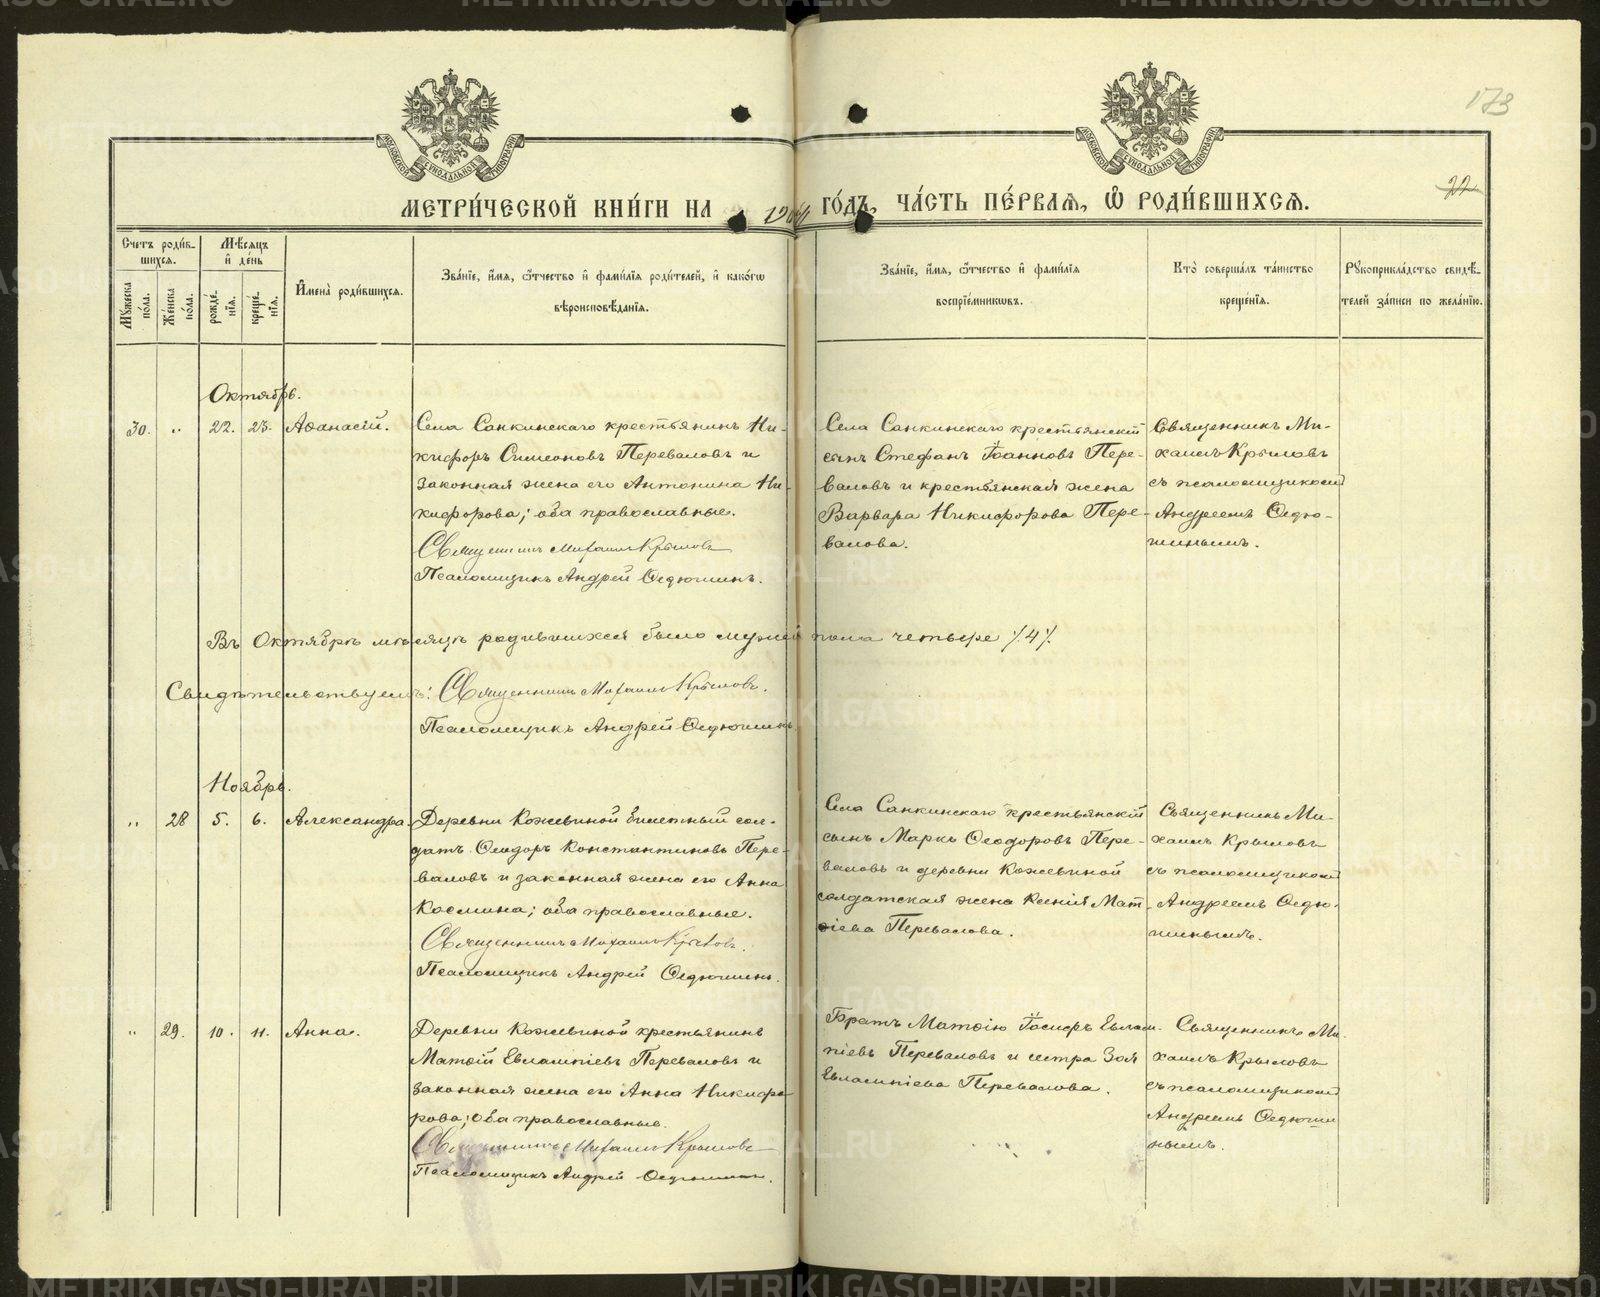 173
22
МЕТРИ́ЧЕСКОЙ КНИ́ГИ НА 1904 ГО́ДЪ, ЧА́СТЬ ПЕ́РВАЯ, Ѿ РОДИ́ВШИХСЯ.
Счетъ роди́в-
шихся.
Мꙋжеска по́ла.
Же́нска по́ла.
Мѣсяцъ и҆ де́нь
рожде́нїя.
креще́нїя.
И҆мена̀ роди́вшихся.
Зва́нїе, и҆́мя, ѻ҆́тчество и҆ фами́лїя роди́телей, и҆ како́гѡ
вѣроисповѣ́данїя.
Зва́нїе, и҆́мя, ѻ҆́тчество и҆ фами́лїя
воспрїе́мникѡвъ.
Кто̀ соверша́лъ та́инство
креще́нїя.
Рꙋкоприкла́дство свидѣ́-
телей за́писи по жела́нїю.
Октябрь.
30. „ 22. 23. Аѳанасій.
Села Санкинскаго крестьянинъ Ни-
кифоръ Симеоновъ Переваловъ и
законная жена его Антонина Ни-
кифорова; оба православные.
Священникъ Михаилъ Крыловъ
Псаломщикъ Андрей Ѳедюшинъ.
Села Санкинскаго крестьянскій
сынъ Стефанъ Іоанновъ Пере-
валовъ и крестьянская жена
Варвара Никифорова Пере-
валова.
Священникъ Ми-
хаилъ Крыловъ
съ псаломщикомъ
Андреемъ Ѳедю-
шинымъ.
Въ Октябрѣ мѣсяцѣ родившихся было мужеск пола четверо /.4/.
Свидѣтельствуемъ: Священникъ Михаилъ Крыловъ.
Псаломщикъ Андрей Ѳедюшинъ
Ноябрь.
„ 28 5. 6. Александра.
Деревни Кожевиной билетный сол-
датъ Ѳеодоръ Константиновъ Пере-
валовъ и законная жена его Анна
Космина; оба православные.
Священникъ Михаилъ Крыловъ.
Псаломщикъ Андрей Ѳедюшинъ.
Села Санкинскаго крестьянскій
сынъ Маркъ Ѳеодоровъ Пере-
валовъ и деревни Кожевиной
солдатская жена Ксенія Мат-
ѳіева Перевалова.
Священникъ Ми-
хаилъ Крыловъ
съ псаломщикомъ
Андреемъ Ѳедю-
шинымъ.
„ 29. 10. 11. Анна.
Деревни Кожевиной крестьянинъ
Матѳій Евлампіевъ Переваловъ и
законная жена его Анна Никифо-
рова; оба православные.
Священникъ Михаилъ Крыловъ
Псаломщикъ Андрей Ѳедюшинъ.
Братъ Матѳію Іосифъ Евлам-
піевъ Переваловъ и сестра Зоя
Евлампіева Перевалова.
Священникъ Ми-
хаилъ Крыловъ
съ псаломщикомъ
Андреемъ Ѳедюши-
нымъ.
METRIKI.GASO-URAL.RU